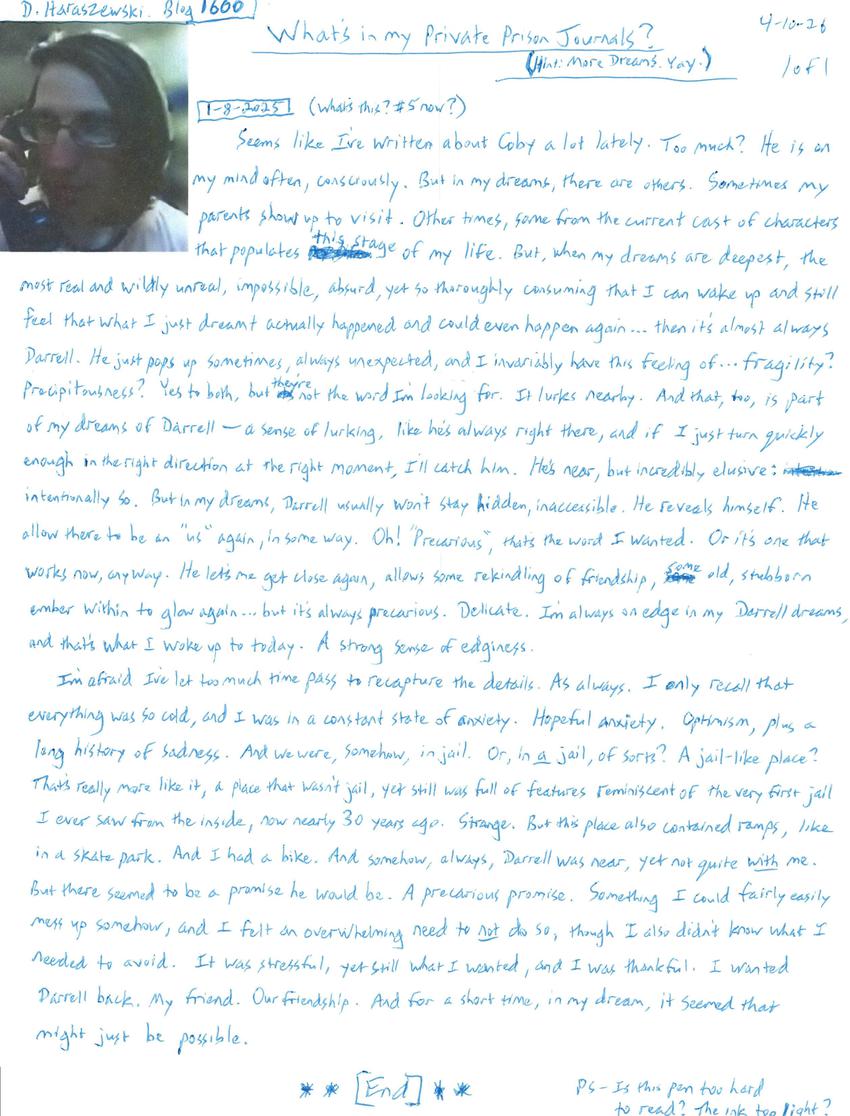 D. Haraszewski. Blog 1600
4-10-26
What's in my Private Prison Journals?
(Hint: More Dreams. Yay.)
1 of 1
1-8-2025 (What's this? #5 now?)
Seems like I've written about Coby a lot lately. Too much? He is on
my mind often, consciously. But in my dreams, there are others. Sometimes my
parents show up to visit. Other times, some from the current cast of characters
that populates this stage of my life. But, when my dreams are deepest, the
most real and wildly unreal, impossible, absurd, yet so thoroughly consuming that I can wake up and still
feel that what I just dreamt actually happened and could even happen again... then it's almost always
Darrell. He just pops up sometimes, always unexpected, and I invariably have this feeling of... fragility?
Precipitousness? Yes to both, but they're not the word I'm looking for. It lurks nearby. And that, too, is part
of my dreams of Darrell — a sense of lurking, like he's always right there, and if I just turn quickly
enough in the right direction at the right moment, I'll catch him. He's near, but incredibly elusive:
intentionally so. But in my dreams, Darrell usually won't stay hidden, inaccessible. He reveals himself. He
allow there to be an "us" again, in some way. Oh! "Precarious", thats the word I wanted. Or it's one that
works now, anyway. He lets me get close again, allows some rekindling of friendship, some old, stubborn
ember within to glow again... but it's always precarious. Delicate. I'm always on edge in my Darrell dreams,
and that's what I woke up to today. A strong sense of edginess.
I'm afraid I've let too much time pass to recapture the details. As always. I only recall that
everything was so cold, and I was in a constant state of anxiety. Hopeful anxiety. Optimism, plus a
long history of sadness. And we were, somehow, in jail. Or, in a jail, of sorts? A jail-like place?
That's really more like it, a place that wasn't jail, yet still was full of features reminiscent of the very first jail
I ever saw from the inside, now nearly 30 years ago. Strange. But this place also contained ramps, like
in a skate park. And I had a bike. And somehow, always, Darrell was near, yet not quite with me.
But there seemed to be a promise he would be. A precarious promise. Something I could fairly easily
mess up somehow, and I felt an overwhelming need to not do so, though I also didn't know what I
needed to avoid. It was stressful, yet still what I wanted, and I was thankful. I wanted
Darrell back. My friend. Our friendship. And for a short time, in my dream, it seemed that
might just be possible.
* * [End] * *
PS- Is this pen too hard
to read? The ink too light?